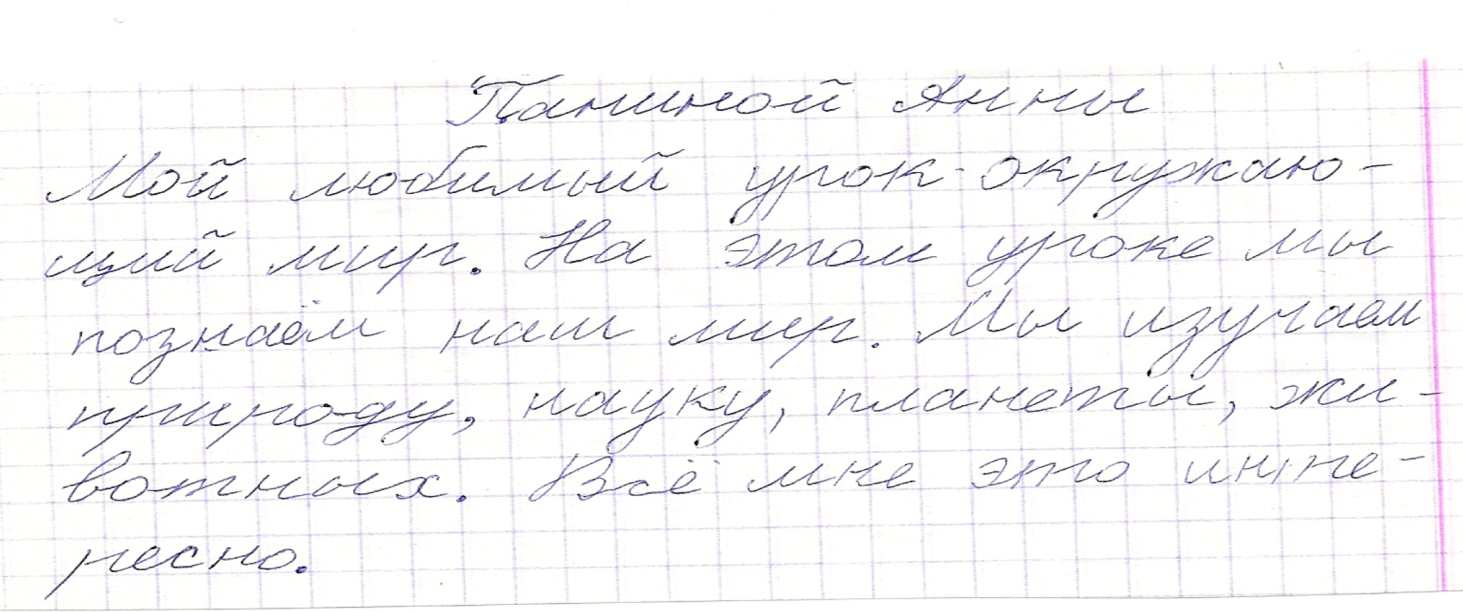 Паниной Анны
Мой любимый урок-окружаю-
щий мир. На этом уроке мы
познаём наш мир. Мы изучаем
природу, науку, планеты, жи-
вотных. Всё мне это инте-
ресно.